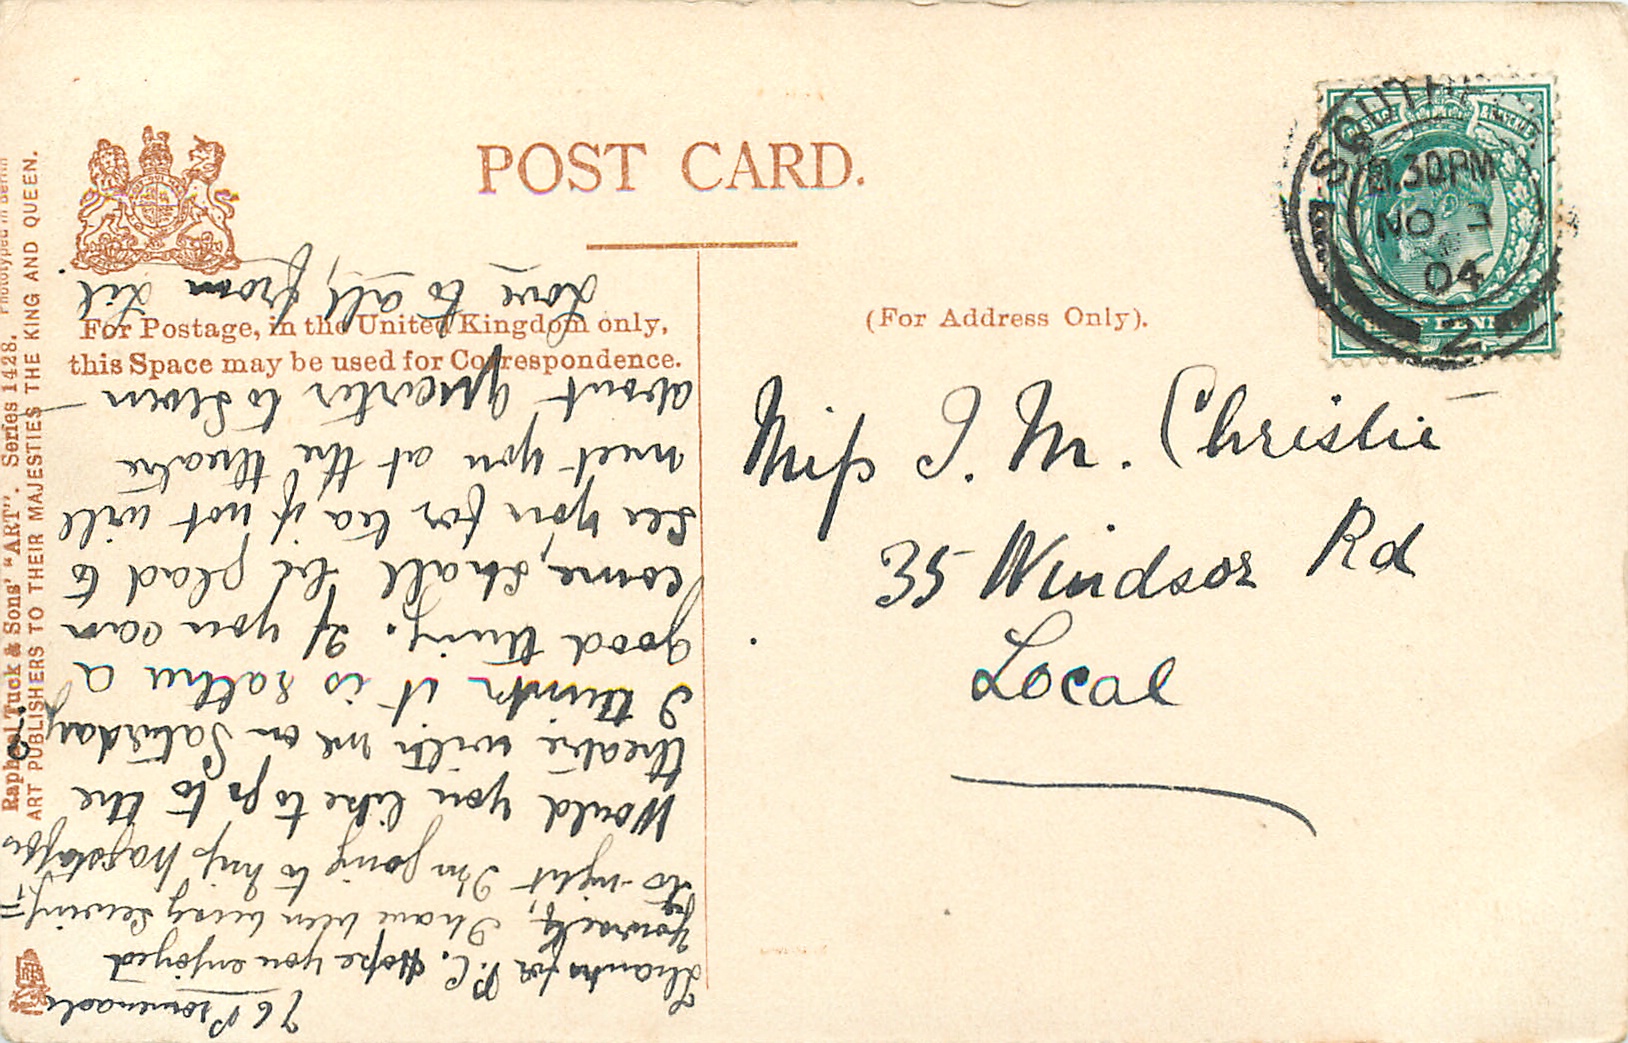 POST CARD.
For Postage, in the United Kingdom only,
this Space may be used for Correspondence.
(For Address Only).
Miss I. M. Christie
35 Windsor Rd
Local
SOUTH
8.30PM
NO 3
04
2
76 Promenade
Thanks for P.C. Hope you enjoyed
yourself, I have been busy sewing
to-night I'm going to Miss
Would you like to go to the
theatre with me on Saturday
I think it is rather a
good thing. If you can
come, shall be glad to
see you for tea if not will
meet you at the theatre
about quarter to seven
Love to all, from Lil
Raphael Tuck & Sons' "ART". Series 1428. Phototyped in Berlin
ART PUBLISHERS TO THEIR MAJESTIES THE KING AND QUEEN.